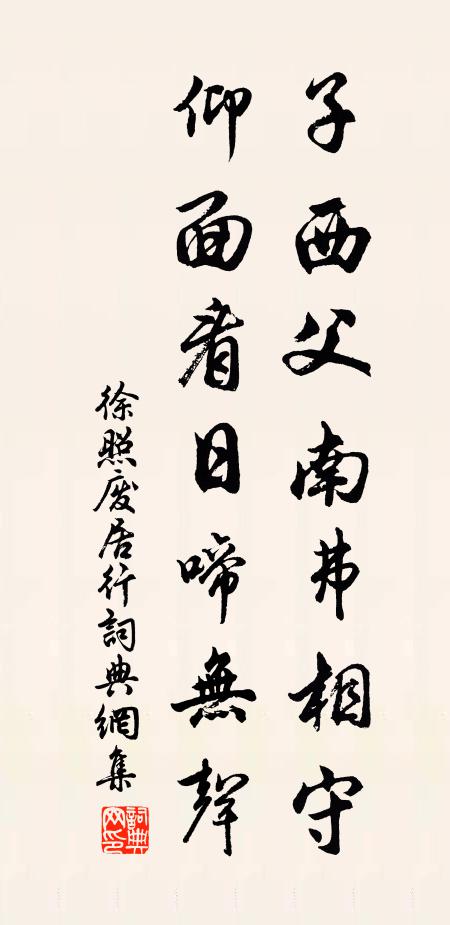 子西父南弗相守
仰面看日啼無聲
徐照廢居行詞典網集
詞典網印